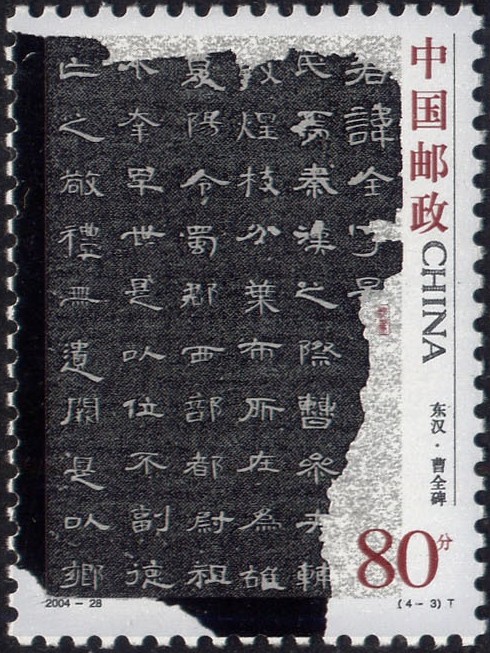 君諱全字景
民焉秦漢之際曹參夾輔
敦煌枝分葉布所在為雄
夏陽令蜀郡西部都尉祖
不幸早世是以位不副德
亡之敬禮無遺闕是以鄉
中国邮政 CHINA
东汉·曹全碑
80分
2004-28
(4-3)T